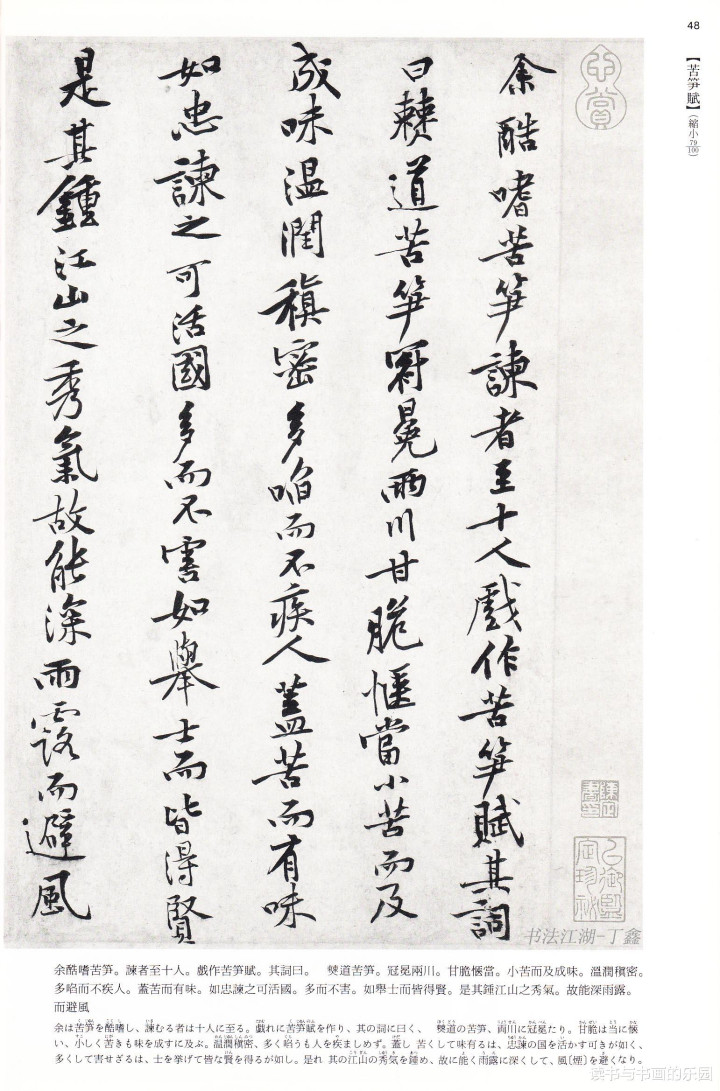 48
【苦笋賦】（縮小79/100）
余酷嗜苦笋諫者至十人戲作苦笋賦其詞
曰僰道苦笋冠冕兩川甘脆愜當小苦而及
成味温潤稹密多啗而不疾人蓋苦而有味
如忠諫之可活國多而不害如舉士而皆得賢
是其鍾江山之秀氣故能深雨露而避風
书法江湖-丁鑫
余酷嗜苦笋。諫者至十人。戲作苦笋賦。其詞曰。　僰道苦笋。冠冕兩川。甘脆愜當。小苦而及成味。溫潤稹密。
多啗而不疾人。蓋苦而有味。如忠諫之可活國。多而不害。如舉士而皆得賢。是其鍾江山之秀氣。故能深雨露。
而避風
余は苦笋を酷嗜し、諫むる者は十人に至る。戲れに苦笋賦を作り、其の詞に曰く、　僰道の苦笋、両川に冠冕たり。甘脆は当に愜
い、小しく苦きも味を成すに及ぶ。温潤稹密、多く啗うも人を疾ましめず。蓋し 苦くして味有るは、忠諫の国を活かす可きが如く、
多くして害せざるは、士を挙げて皆な賢を得るが如し。是れ 其の江山の秀気を鍾め、故に能く雨露に深くして、風〔煙〕を避くなり。
读书与书画的乐园